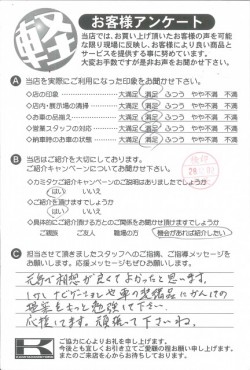 軽
お客様アンケート
当店では、お買い上げ頂いたお客様の声を可能
な限り現場に反映し、お客様により良い商品と
サービスを提供する事に努めています。
大変お手数ですが是非お声をお聞かせ下さい。
A 当店を実際にご利用になった印象をお聞かせ下さい。
○店の印象 大満足 満足 ふつう やや不満 不満
○店内・展示場の清掃 大満足 満足 ふつう やや不満 不満
○お車の品揃え 大満足 満足 ふつう やや不満 不満
○営業スタッフの対応 大満足 満足 ふつう やや不満 不満
○納車時のお車の状態 大満足 満足 ふつう やや不満 不満
B 当店はご紹介を大切にしております。
ご紹介キャンペーンについてお聞かせ下さい。
○カミタケご紹介キャンペーンのご説明はありましたでしょうか
はい いいえ
○ご紹介を頂けますでしょうか
はい いいえ
○具体的にご紹介頂ける方とのご関係をお聞かせ頂けますでしょうか
ご親類 ご友人 職場の方 機会があれば紹介したい
C 担当させて頂きましたスタッフへのご指摘、ご指導メッセージを
お願いします。応援メッセージもぜひお願いします。
元気で相想が良くてよかったと思います。
提案をもっと勉強して下さい。
応援してます。頑張って下さいね。
K
ご協力に心よりお礼を申し上げます。
今後とも宜しくお引き立てご愛顧の程お願い申し上げます。
またのご来店を心からお待ちしております。